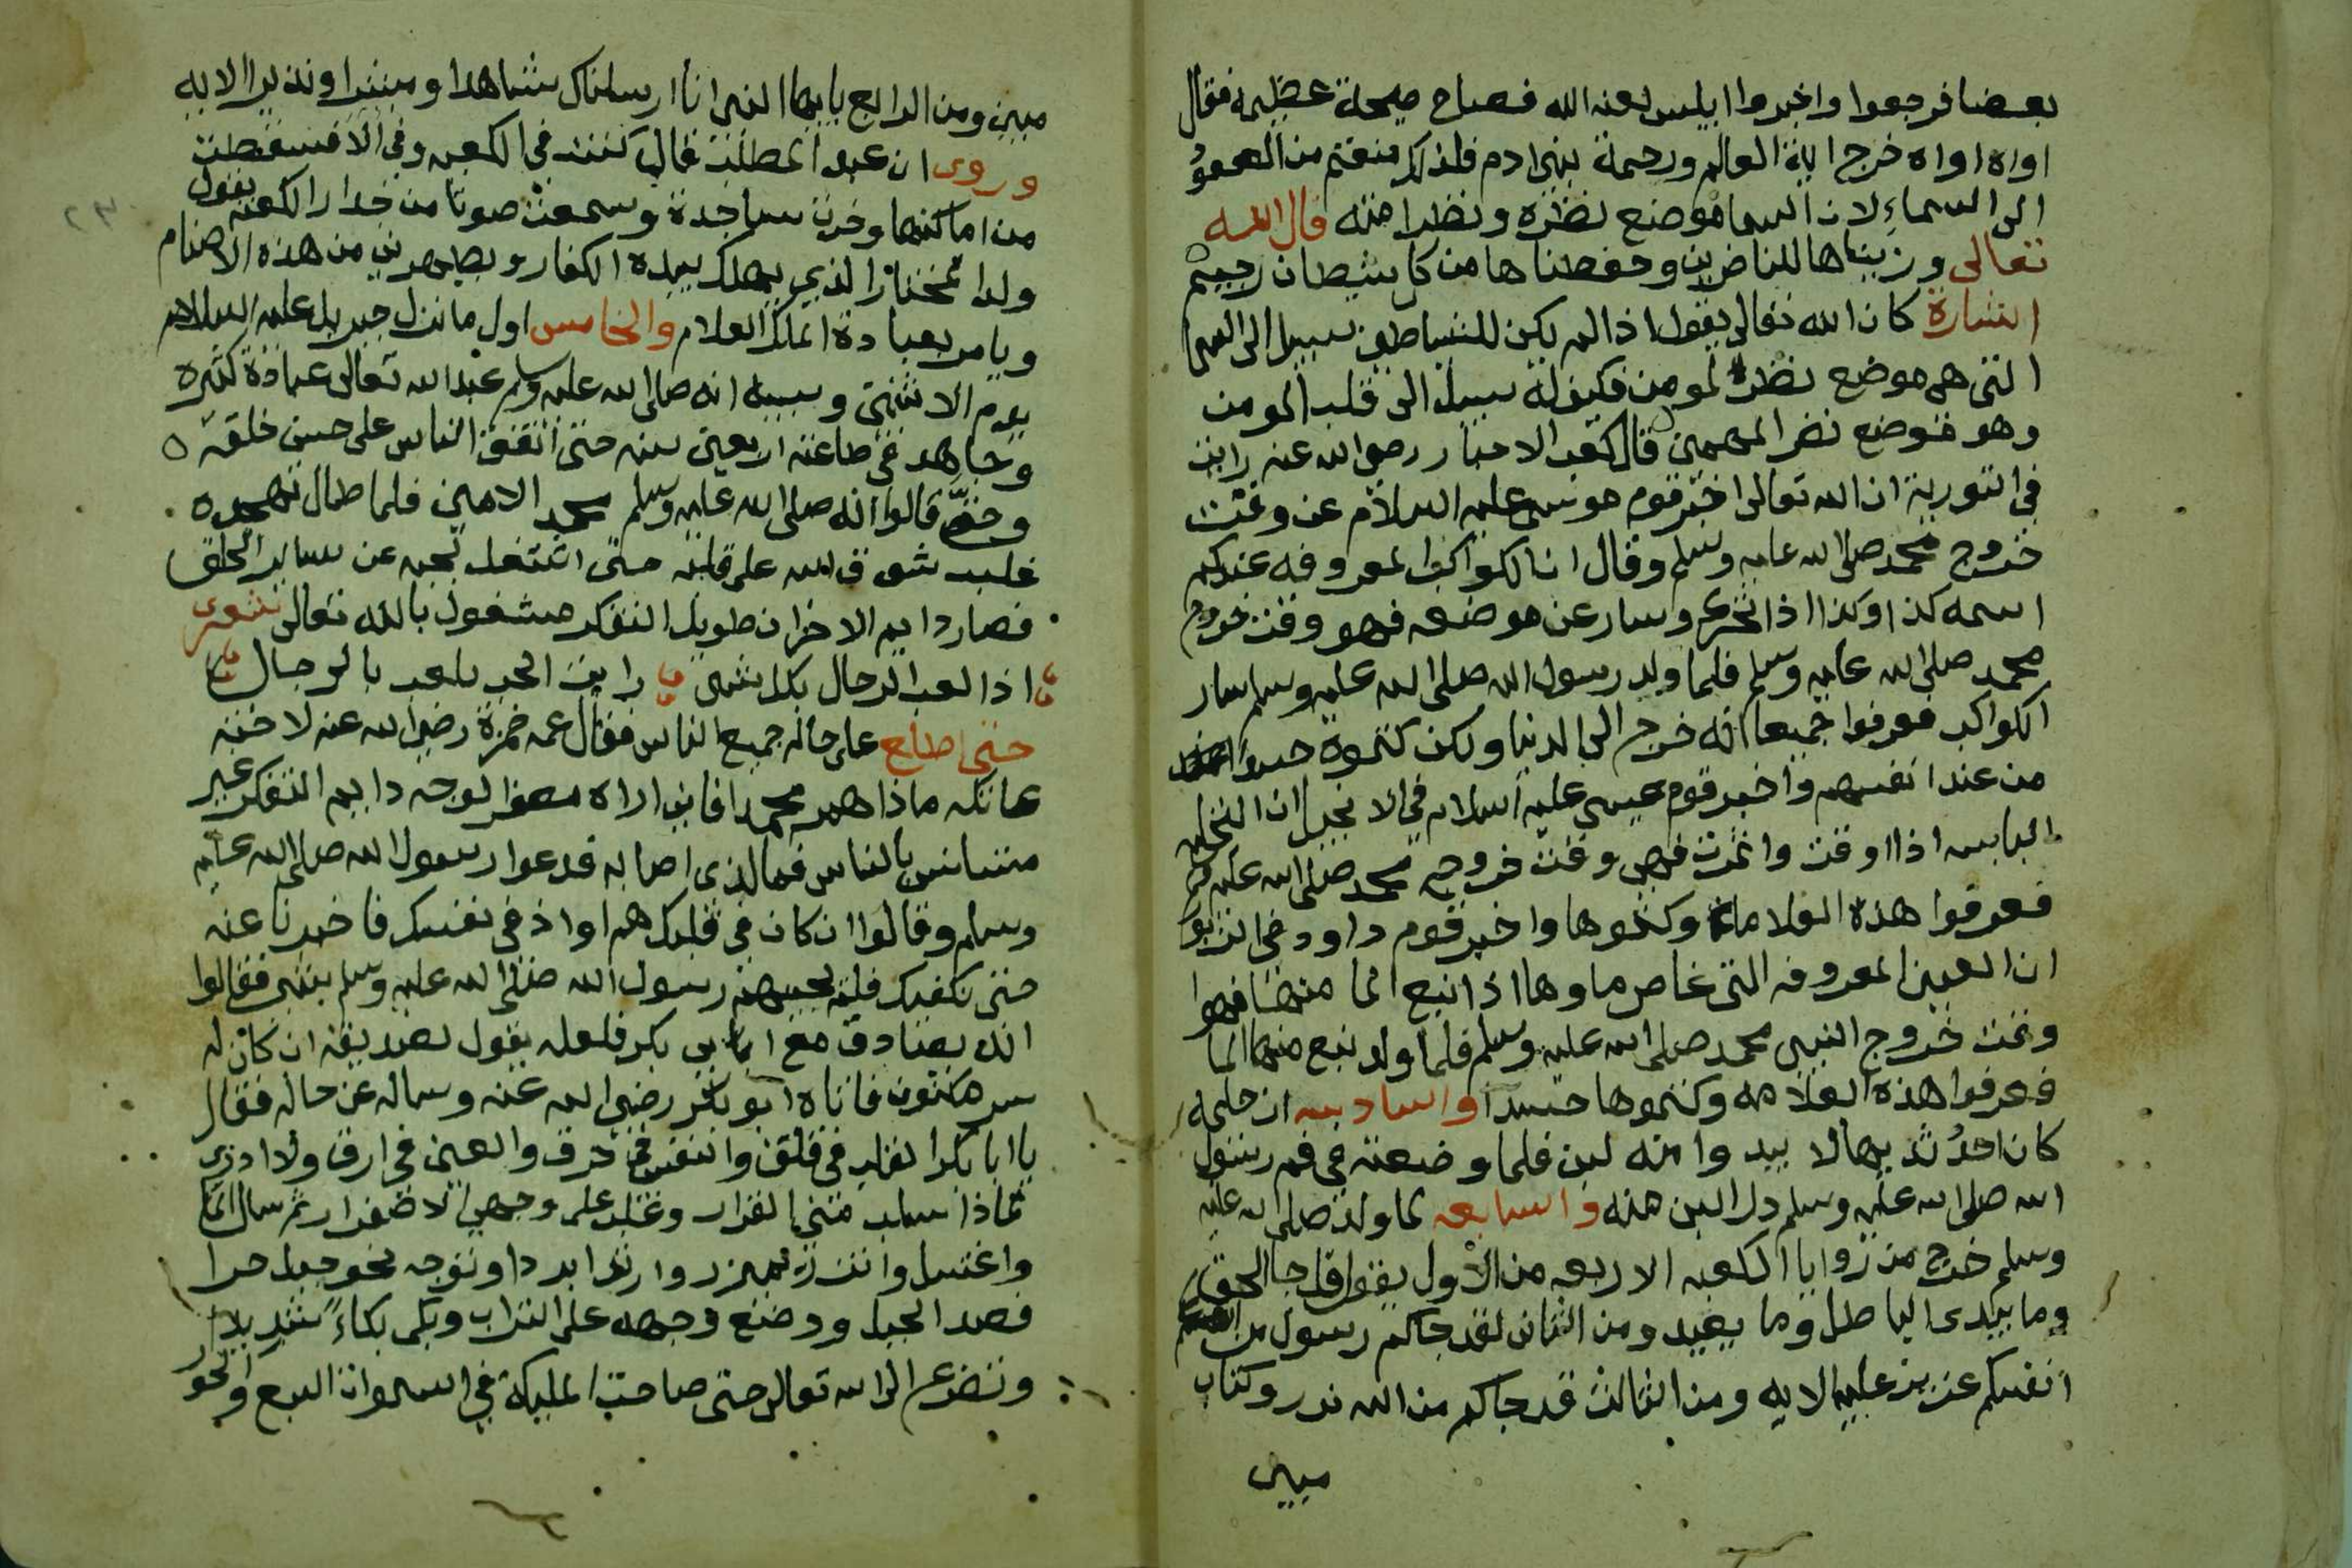 بعضا فرجعوا واخبروا ابليس لعنه الله فصاح صيحة عظيمة فقال
اواه اواه خرج اية العالم ورحمة بني ادم فلذلك منعتم من الصعود
الى السماء لان السما موضع نظره ونظر امته قال الله
تعالى وزيناها للناضرين وحفظناها من كل شيطان رجيم
اشارة كان الله تعالى يقول اذا لم يكن للشياطين سبيل الى السما
التي هي موضع نظر المومن فكيف له سبيل الى قلب المومن
وهو موضع نضر المهيمن قال كعب الاحبار رضي الله عنه رايت
في التورية ان الله تعالى اخبر قوم موسى عليه السلام عن وقت
خروج محمد صلى الله عليه وسلم وقال ان الكواكب المعروفه عندكم
اسمه كذا وكذا اذا تحرك وسار عن موضعه فهو وقت خروج
محمد صلى الله عليه وسلم فلما ولد رسول الله صلى الله عليه وسلم سار
الكواكب فعرفوا جميعا انه خرج الى الدنيا ولكن كتموه حسدا
من عند انفسهم واخبر قوم عيسى عليه السلام في الانجيل ان النخلة
اليابسه اذا اوقت واثمرت فهي وقت خروج محمد صلى الله عليه وسلم
فعرفوا هذه العلامة وكتموها واخبر قوم داوود في الزبور
ان العين المعروفه التي غاص ماوها اذا نبع الما منها فهوا
وقت خروج النبي محمد صلى الله عليه وسلم فلما ولد نبع منها الما
فعرفوا هذه العلامه وكتموها حسدا والسادسه ان حليمه
كان احد ثديها لا يبد وا منه لبن فلما وضعته في فم رسول
الله صلى الله عليه وسلم در اللبن منه والسابعه لما ولد صلى الله عليه
وسلم خرج من زوايا الكعبه الاربعه من الاول يقول قل جا الحق
وما يبدى الباطل وما يعيد ومن الثاني لقد جاكم رسول من
انفسكم عزيز عليه الايه ومن الثالث قد جاكم من الله نور وكتاب
مبين
مبين ومن الرابع يايها النبي انا ارسلناك شاهدا ومبشرا ونذيرا الايه
وروى ان عبد المطلب قال كنت في الكعبه وفي الا فسقطت
من اماكنها وخرت ساجدة وسمعت صوتا من جدار الكعبه يقول
ولد المختار الذي يهلك بيده الكفار ويطهرني من هذه الاصنام
ويامر بعبادة الملك العلام والخامس اول ما نزل جبريل عليه السلام
يوم الاثنين وسببه انه صلى الله عليه وسلم عبد الله تعالى عبادة كثيرة
وجاهد في طاعته اربعين سنه حتى اتفق الناس على حسن خلقه
وحتى قالوا انه صلى الله عليه وسلم محمد الامين فلما طال تهجده
غلب شوق الله على قلبه حتى اشتغل بحبه عن ساير الخلق
فصار دايم الاحزان طويل التفكر مشغول بالله تعالى شعر
اذا لعب الرجال بكل شي رايت الحب يلعب بالرجال
حتى اطلع على حاله جميع الناس فقال عمه حمزة رضي الله عنه لاخته
عاتكه ماذا هم محمد افاني اراه مصفر الوجه دايم التفكر غير
مستانس بالناس فما الذي اصابه فدعوا رسول الله صلى الله عليه
وسلم وقالوا ان كان في قلبك هم او اذ في نفسك فاخبرنا عنه
حتى نكفيك فلم يجيبهم رسول الله صلى الله عليه وسلم بشي فقالوا
انه يصادق مع ابا بي بكر فلعله يقول لصديقه ان كان له
سر مكتوم فاتاه ابو بكر رضي الله عنه وساله عن حاله فقال
يا ابا بكر القلب في قلق والنفس في حرق والعين في ارق ولا ادري
لماذا سلب مني القرار وغلب على وجهي الاصفرار ثم سال الما
واغتسل واتزر بميزر وارتدا بردا وتوجه نحو جبل حرا
فصعد الجبل ووضع وجهه على التراب وبكى بكاء شديدا
وتضرع الى الله تعالى حتى صاحت المليكة في السموات السبع والحور